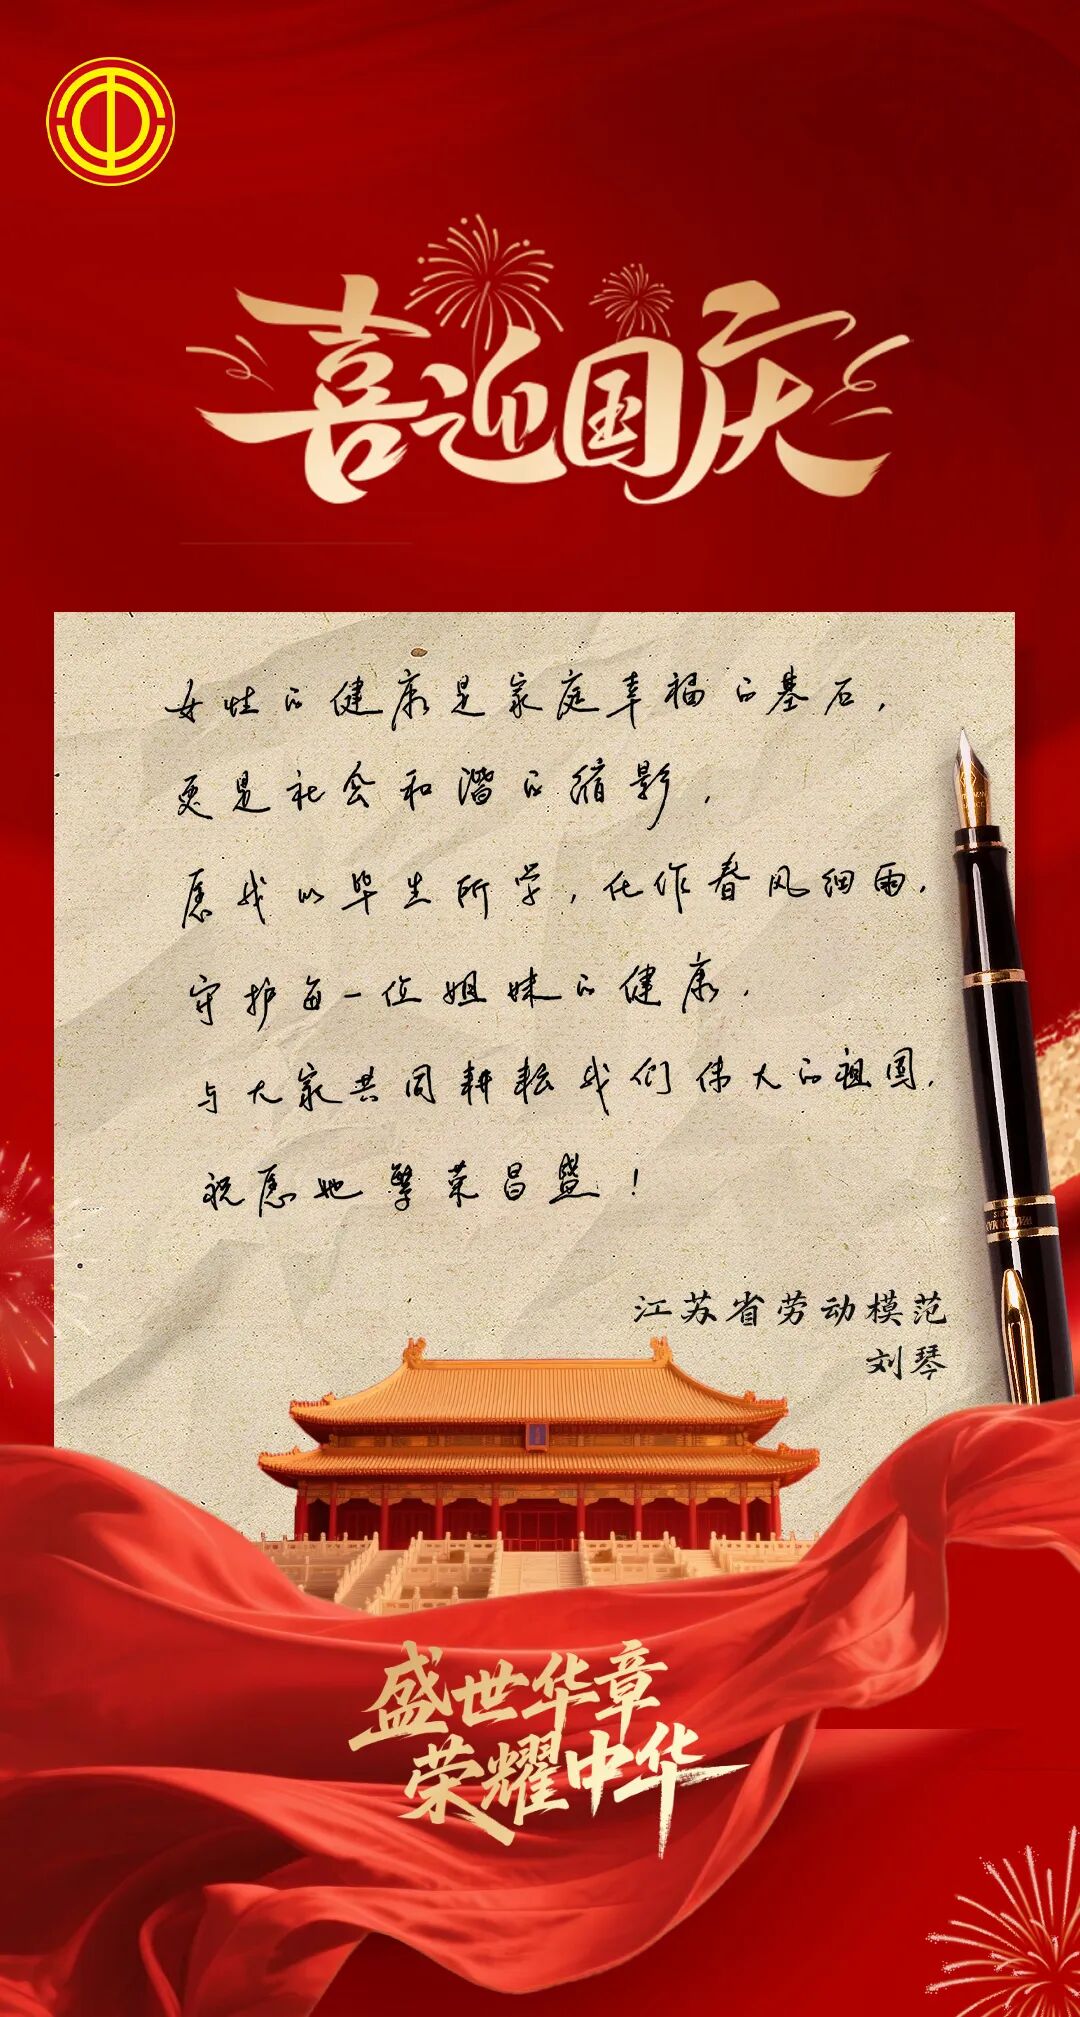 喜迎国庆
女性的健康是家庭幸福的基石，
更是社会和谐的缩影，
愿我以毕生所学，化作春风细雨，
守护每一位姐妹的健康，
与大家共同耕耘我们伟大的祖国，
祝愿她繁荣昌盛！
江苏省劳动模范
刘琴
盛世华章
荣耀中华